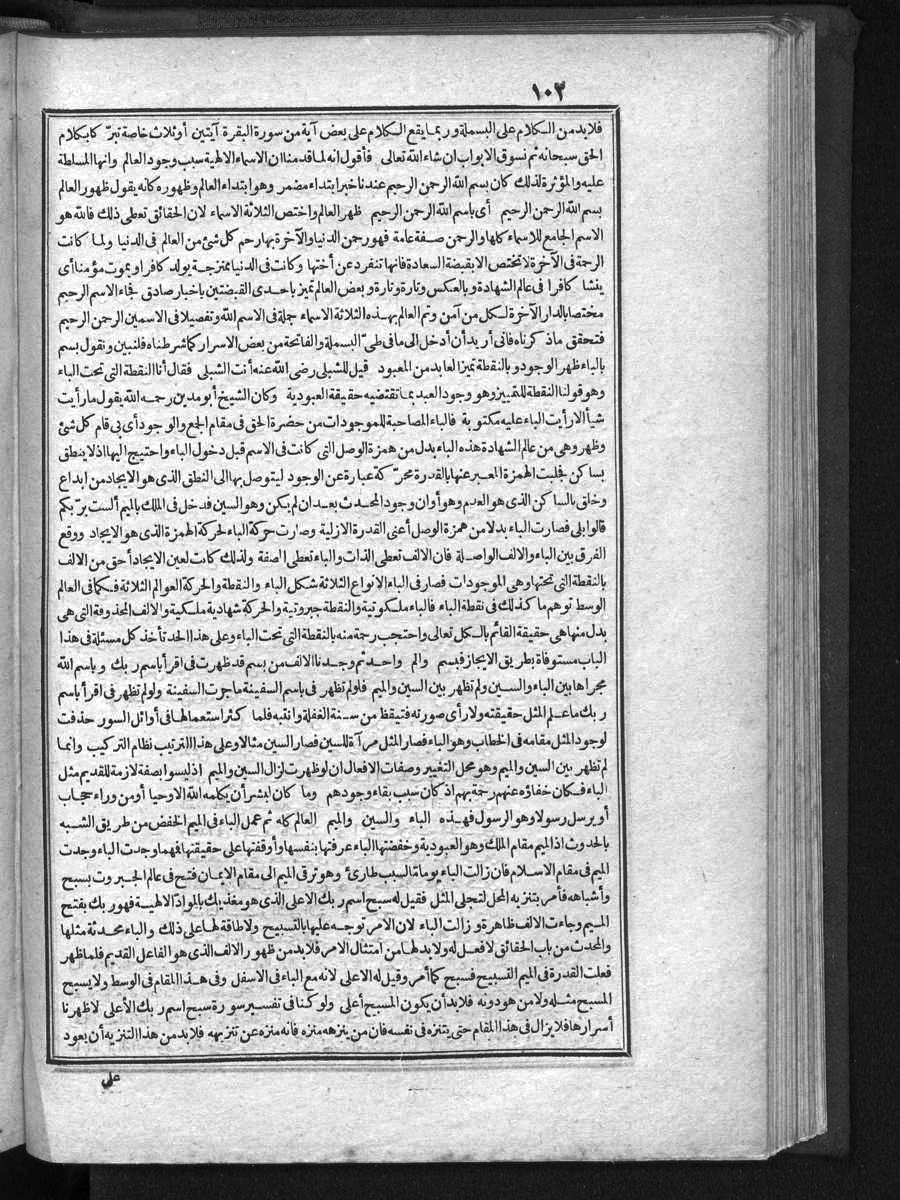 ١٠٢
فلا بد من الكلام على البسملة وربما يقع الكلام على بعض آية من سورة البقرة آيتين أو ثلاث خاصة تبركا بكلام
الحق سبحانه ثم نسوق الابواب ان شاء الله تعالى فأقول انه لما قدمنا ان الاسماء الالهية سبب وجود العالم وانها المسلطة
عليه والمؤثرة لذلك كان بسم الله الرحمن الرحيم عندنا خبر ابتداء مضمر وهو ابتداء العالم وظهوره كانه يقول ظهور العالم
بسم الله الرحمن الرحيم أى باسم الله الرحمن الرحيم ظهر العالم واختص الثلاثة الاسماء لان الحقائق تعطى ذلك فالله هو
الاسم الجامع للاسماء كلها والرحمن صفة عامة فهو رحمن الدنيا والآخرة بها رحم كل شئ من العالم فى الدنيا ولما كانت
الرحمة فى الآخرة لا تختص الا بقبضة السعادة فانها تنفرد عن أختها وكانت فى الدنيا ممتزجة يولد كافرا ويموت مؤمنا أى
ينشأ كافرا فى عالم الشهادة وبالعكس وتارة وتارة وبعض العالم تميز باحدى القبضتين باخبار صادق فجاء الاسم الرحيم
مختصا بالدار الآخرة لكل من آمن وتم العالم بهذه الثلاثة الاسماء جملة فى الاسم الله وتفصيلا فى الاسمين الرحمن الرحيم
فتحقق ماذكرناه فانى أريد أن أدخل الى ما فى طىّ البسملة والفاتحة من بعض الاسرار كما شرطناه فلنبين ونقول بسم
بالباء ظهر الوجود وبالنقطة تميز العابد من المعبود قيل للشبلى رضى الله عنه أنت الشبلى فقال أنا النقطة التى تحت الباء
وهو قولنا النقطة للتمييز وهو وجود العبد بما تقتضيه حقيقة العبودية وكان الشيخ أبو مدين رحمه الله يقول ما رأيت
شيأ الا رأيت الباء عليه مكتوبة فالباء المصاحبة للموجودات من حضرة الحق فى مقام الجمع والوجود أى بى قام كل شئ
وظهر وهى من عالم الشهادة هذه الباء بدل من همزة الوصل التى كانت فى الاسم قبل دخول الباء واحتيج اليها اذ لا ينطق
بساكن فجلبت الهمزة المعبر عنها بالقدرة محرّكة عبارة عن الوجود ليتوصل بها الى النطق الذى هو الايجاد من ابداع
وخلق بالساكن الذى هو العدم وهو أوان وجود المحدث بعد ان لم يكن وهو السين فدخل فى الملك بالميم ألست بربّكم
قالوا بلى فصارت الباء بدلا من همزة الوصل أعنى القدرة الازلية وصارت حركة الباء لحركة الهمزة الذى هو الايجاد ووقع
الفرق بين الباء والالف الواصلة فان الالف تعطى الذات والباء تعطى الصفة ولذلك كانت لعين الايجاد أحق من الالف
بالنقطة التى تحتها وهى الموجودات فصار فى الباء الانواع الثلاثة شكل الباء والنقطة والحركة العوالم الثلاثة فكما فى العالم
الوسط توهم ما كذلك فى نقطة الباء فالباء ملكوتية والنقطة جبروتية والحركة شهادية ملكية والالف المحذوفة التى هى
بدل منها هى حقيقة القائم بالكل تعالى واحتجب رحمة منه بالنقطة التى تحت الباء وعلى هذا الحد تأخذ كل مسئلة فى هذا
الباب مستوفاة بطريق الايجاز فبسم والم واحد ثم وجدنا الالف من بسم قد ظهرت فى اقرأ باسم ربك وباسم الله
مجراها بين الباء والسين ولم تظهر بين السين والميم فلو لم تظهر فى باسم السفينة ما جرت السفينة ولو لم تظهر فى اقرأ باسم
ربك ما علم المثل حقيقته ولا رأى صورته فتيقظ من سنة الغفلة وانتبه فلما كثر استعمالها فى أوائل السور حذفت
لوجود المثل مقامه فى الخطاب وهو الباء فصار المثل مرآة للسين فصار السين مثالا وعلى هذا الترتيب نظام التركيب وانما
لم تظهر بين السين والميم وهو محل التغيير وصفات الافعال ان لو ظهرت لزال السين والميم اذ ليسوا بصفة لازمة للقديم مثل
الباء فكان خفاؤه عنهم رحمة بهم اذ كان سبب بقاء وجودهم وما كان لبشر أن يكلمه الله الا وحيا أو من وراء حجاب
أو يرسل رسولا وهو الرسول فهذه الباء والسين والميم العالم كله ثم عمل الباء فى الميم الخفض من طريق الشبه
بالحدوث اذ الميم مقام الملك وهو العبودية وخفضتها الباء عرفتها بنفسها وأوقفتها على حقيقتها فهما وجدت الباء وجدت
الميم فى مقام الاسلام فان زالت الباء يوما ما لسبب طارئ وهو ترقى الميم الى مقام الايمان فتح فى عالم الجبروت بسبح
وأشباهه فأمر بتنزيه المحل لتجلى المثل فقيل له سبح اسم ربك الاعلى الذى هو مغذيك بالموادّ الالهية فهو ربك بفتح
الميم وجاءت الالف ظاهرة وزالت الباء لان الامر توجه عليها بالتسبيح ولا طاقة لها على ذلك والباء محدثة مثلها
والمحدث من باب الحقائق لا فعل له ولا بد لها من امتثال الامر فلا بد من ظهور الالف الذى هو الفاعل القديم فلما ظهر
فعلت القدرة فى الميم التسبيح فسبح كما أمر وقيل له الاعلى لانه مع الباء فى الاسفل وفى هذا المقام فى الوسط ولا يسبح
المسبح مثله ولا من هو دونه فلا بد أن يكون المسبح أعلى ولو كنا فى تفسير سورة سبح اسم ربك الأعلى لاظهرنا
أسرارها فلا يزال فى هذا المقام حتى يتنزه فى نفسه فان من ينزهه منزه فانه منزه عن تنزيهه فلا بد من هذا التنزيه أن يعود
على